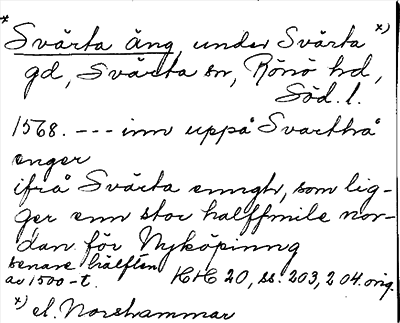 * Svärta äng, under Svärta *)
gd, Svärta sn, Rönö hd,
Söd. l.
1568. --- inn uppå Svarthå
enger
ifrå Svärta enngh, som lig-
ger enn stor halffmile nor-
dan för Nyköpinng
senare hälften
av 1500-t. KHC 20, ss. 203, 204. orig.
*) el. Norshammar